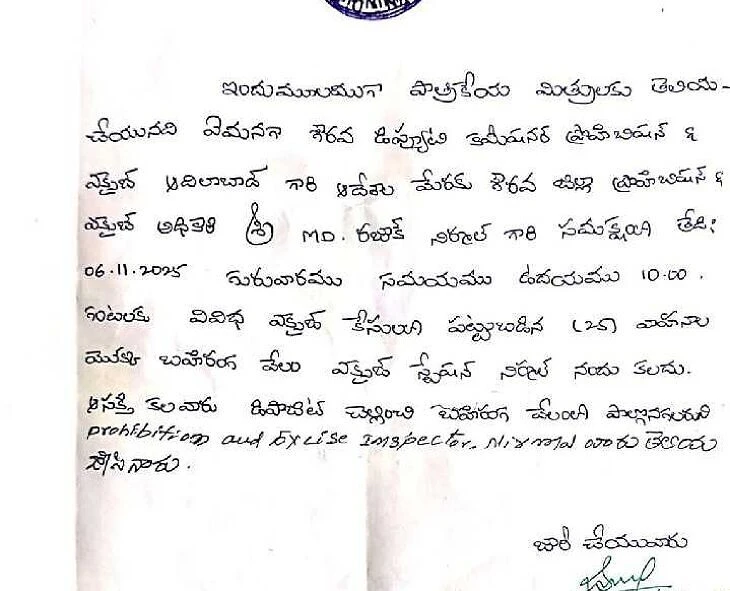 ఇందుమూలముగా పాత్రికేయ మిత్రులకు తెలియ-
చేయునది ఏమనగా గౌరవ డిప్యూటి కమీషనర్ ప్రొహిబిషన్ &
ఎక్సైజ్ ఆదిలాబాద్ గారి ఆదేశాల మేరకు గౌరవ జిల్లా ప్రొహిబిషన్ &
ఎక్సైజ్ అధికారి శ్రీ MD. రజాక్ నిర్మల్ గారి సమక్షంలో తేది:
06.11.2025 గురువారము సమయము ఉదయము 10.00.
గంటలకు వివిధ ఎక్సైజ్ కేసులలో పట్టుబడిన (25) వాహనాల
యొక్క బహిరంగ వేలం ఎక్సైజ్ స్టేషన్ నిర్మల్ నందు కలదు.
ఆసక్తి కలవారు డిపాజిట్ చెల్లించి బహిరంగ వేలంలో పాల్గొనగలరని
prohibition and Excise Inspector, Nirmal వారు తెలియ
జేసినారు.
జారీ చేయువారు